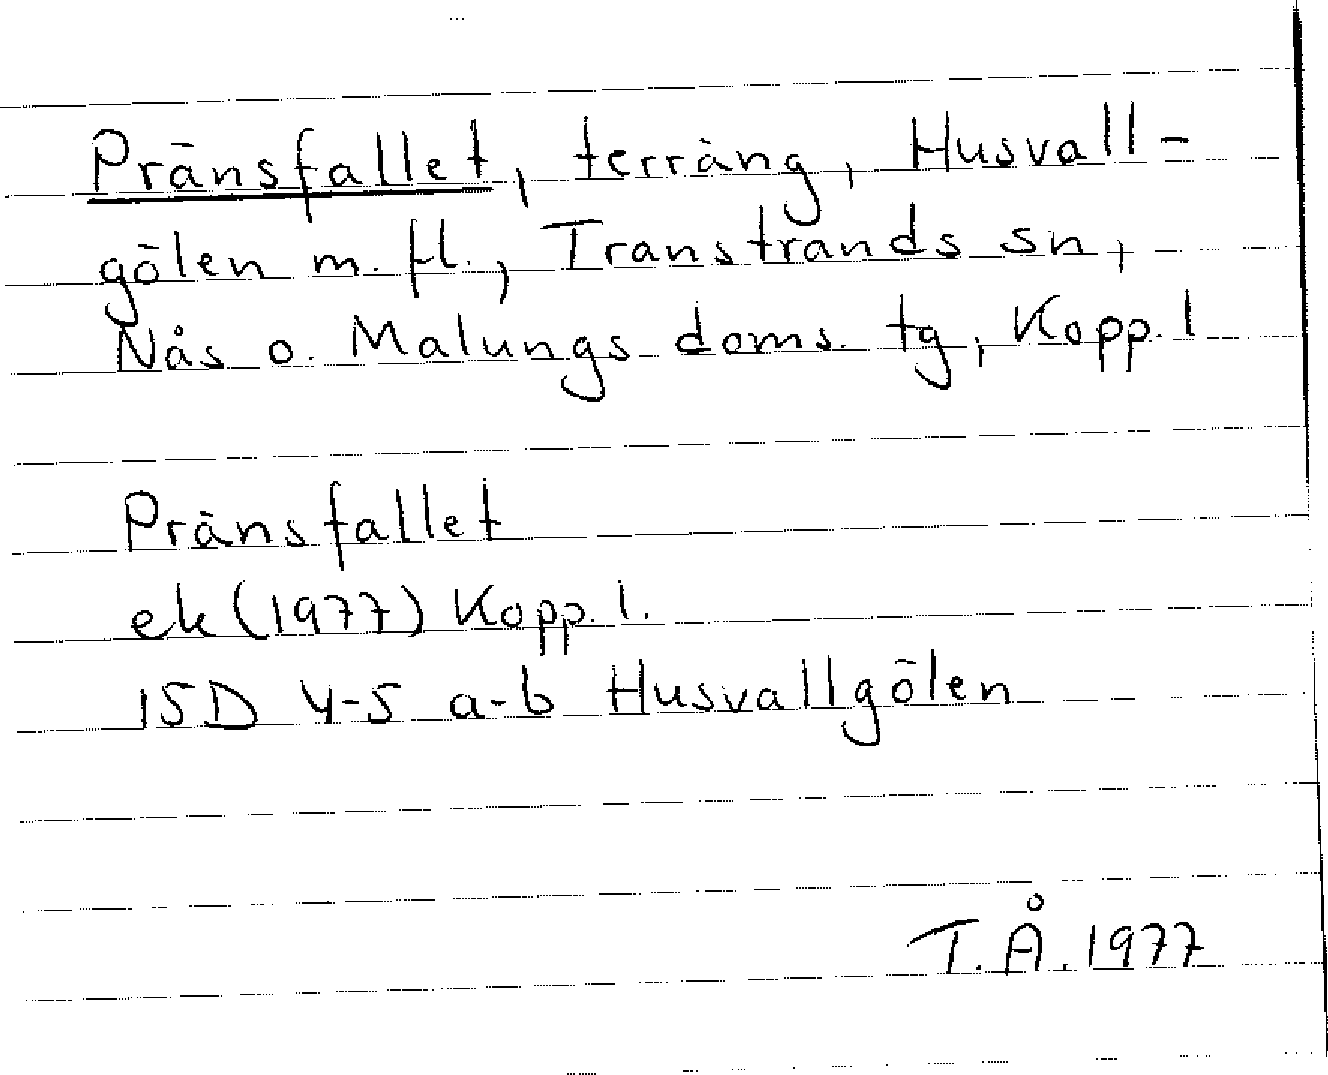 Pränsfallet, terräng, Husvall-
gölen m. fl., Transtrands sn,
Nås o. Malungs doms. tg, Kopp. l
Pränsfallet
ek (1977) Kopp. l.
15D 4-5 a-b Husvallgölen
T.Å. 1977